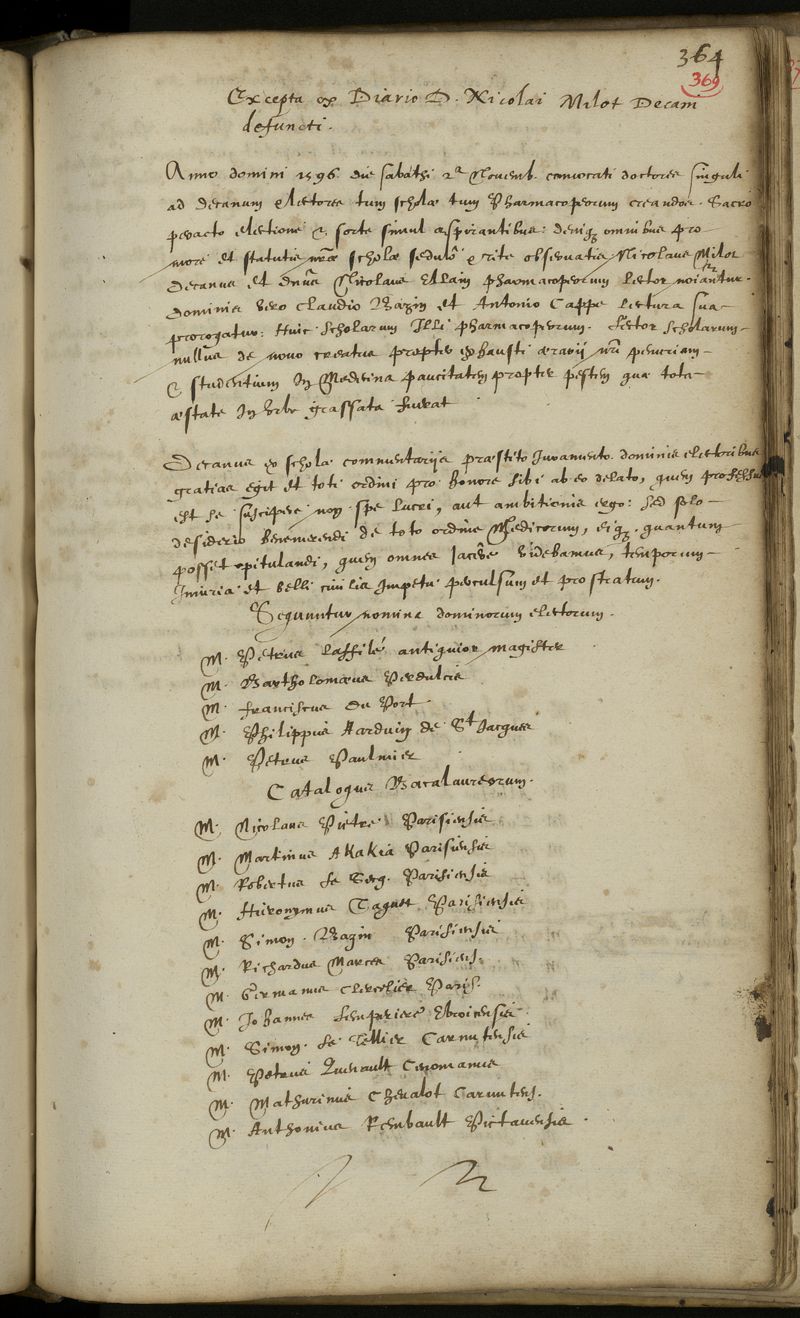 364
369
Excepta ex Diario D. Nicolai Milot Decani
defuncti.
Anno domini 1596. die sabathi 2ª Novemb. convocati doctores singuli
ad decanum electores tum scholæ tum Pharmacopeorum creandos. Sacro
peracto electione & sorte simul aspirantibus: deniq; omnibus pro
more et statutis nræ scholæ sedulò & rite observatis Nicolaus Milot
Decanus et Nicolaus Ellain pharmacopeorum lector
Dominis vero Claudio Bazin et Antonio Cappe lectura sua
prorogatur: Huic Scholarum Illi pharmacopeorum. Lector Scholarum
nullus de novo creatus propter exhausti ærarij nri penuriam
& studentium In Medicina paucitatem propter pestem quæ tota
æstate In urbe grassata fuerat
Decanus ex scholæ commentarijs præstito Juramento. dominis electoribus
gratias egit et toti ordini pro honore sibi ab eo delato, quem professus
est se suscipere non spe lucri, aut ambitionis ergo: sed solo
desiderio benemerendi de toto ordine Medicorum, eiq; quantum
posset opitulandi, quem omnes Jacere videbamus, temporum
Injuria et belli civilis Impetu perculsum et prostratum.
Sequuntur nomina dominorum electorum.
M. Petrus Laffilé antiquior magister
M. Bartholomæus Perdulcis
M. franciscus du Port
M. Philippus Harduin de St Jacques
M. Petrus Paulmier
Catalogus Bacalaureorum.
M. Nicolaus Pietre Parisiensis
M. Martinus Akakia Parisiensis
M. Robertus Le Secq. Parisiensis
M. Hieronymus Taguet Parisiensis
M. Simon. Bazin Parisiensis
M. Richardus Marces Parisiens.
M. Germanus Clercelier Paris.
M. Johannes Lemperiere Ebroicensis.
M. Simon. Le Tellier Carnutensis
M. Petrus Quenault Cenomanus
M. Mathurinus Chevalot Carnutens.
M. Anthonius Rembault Pictaviensis.